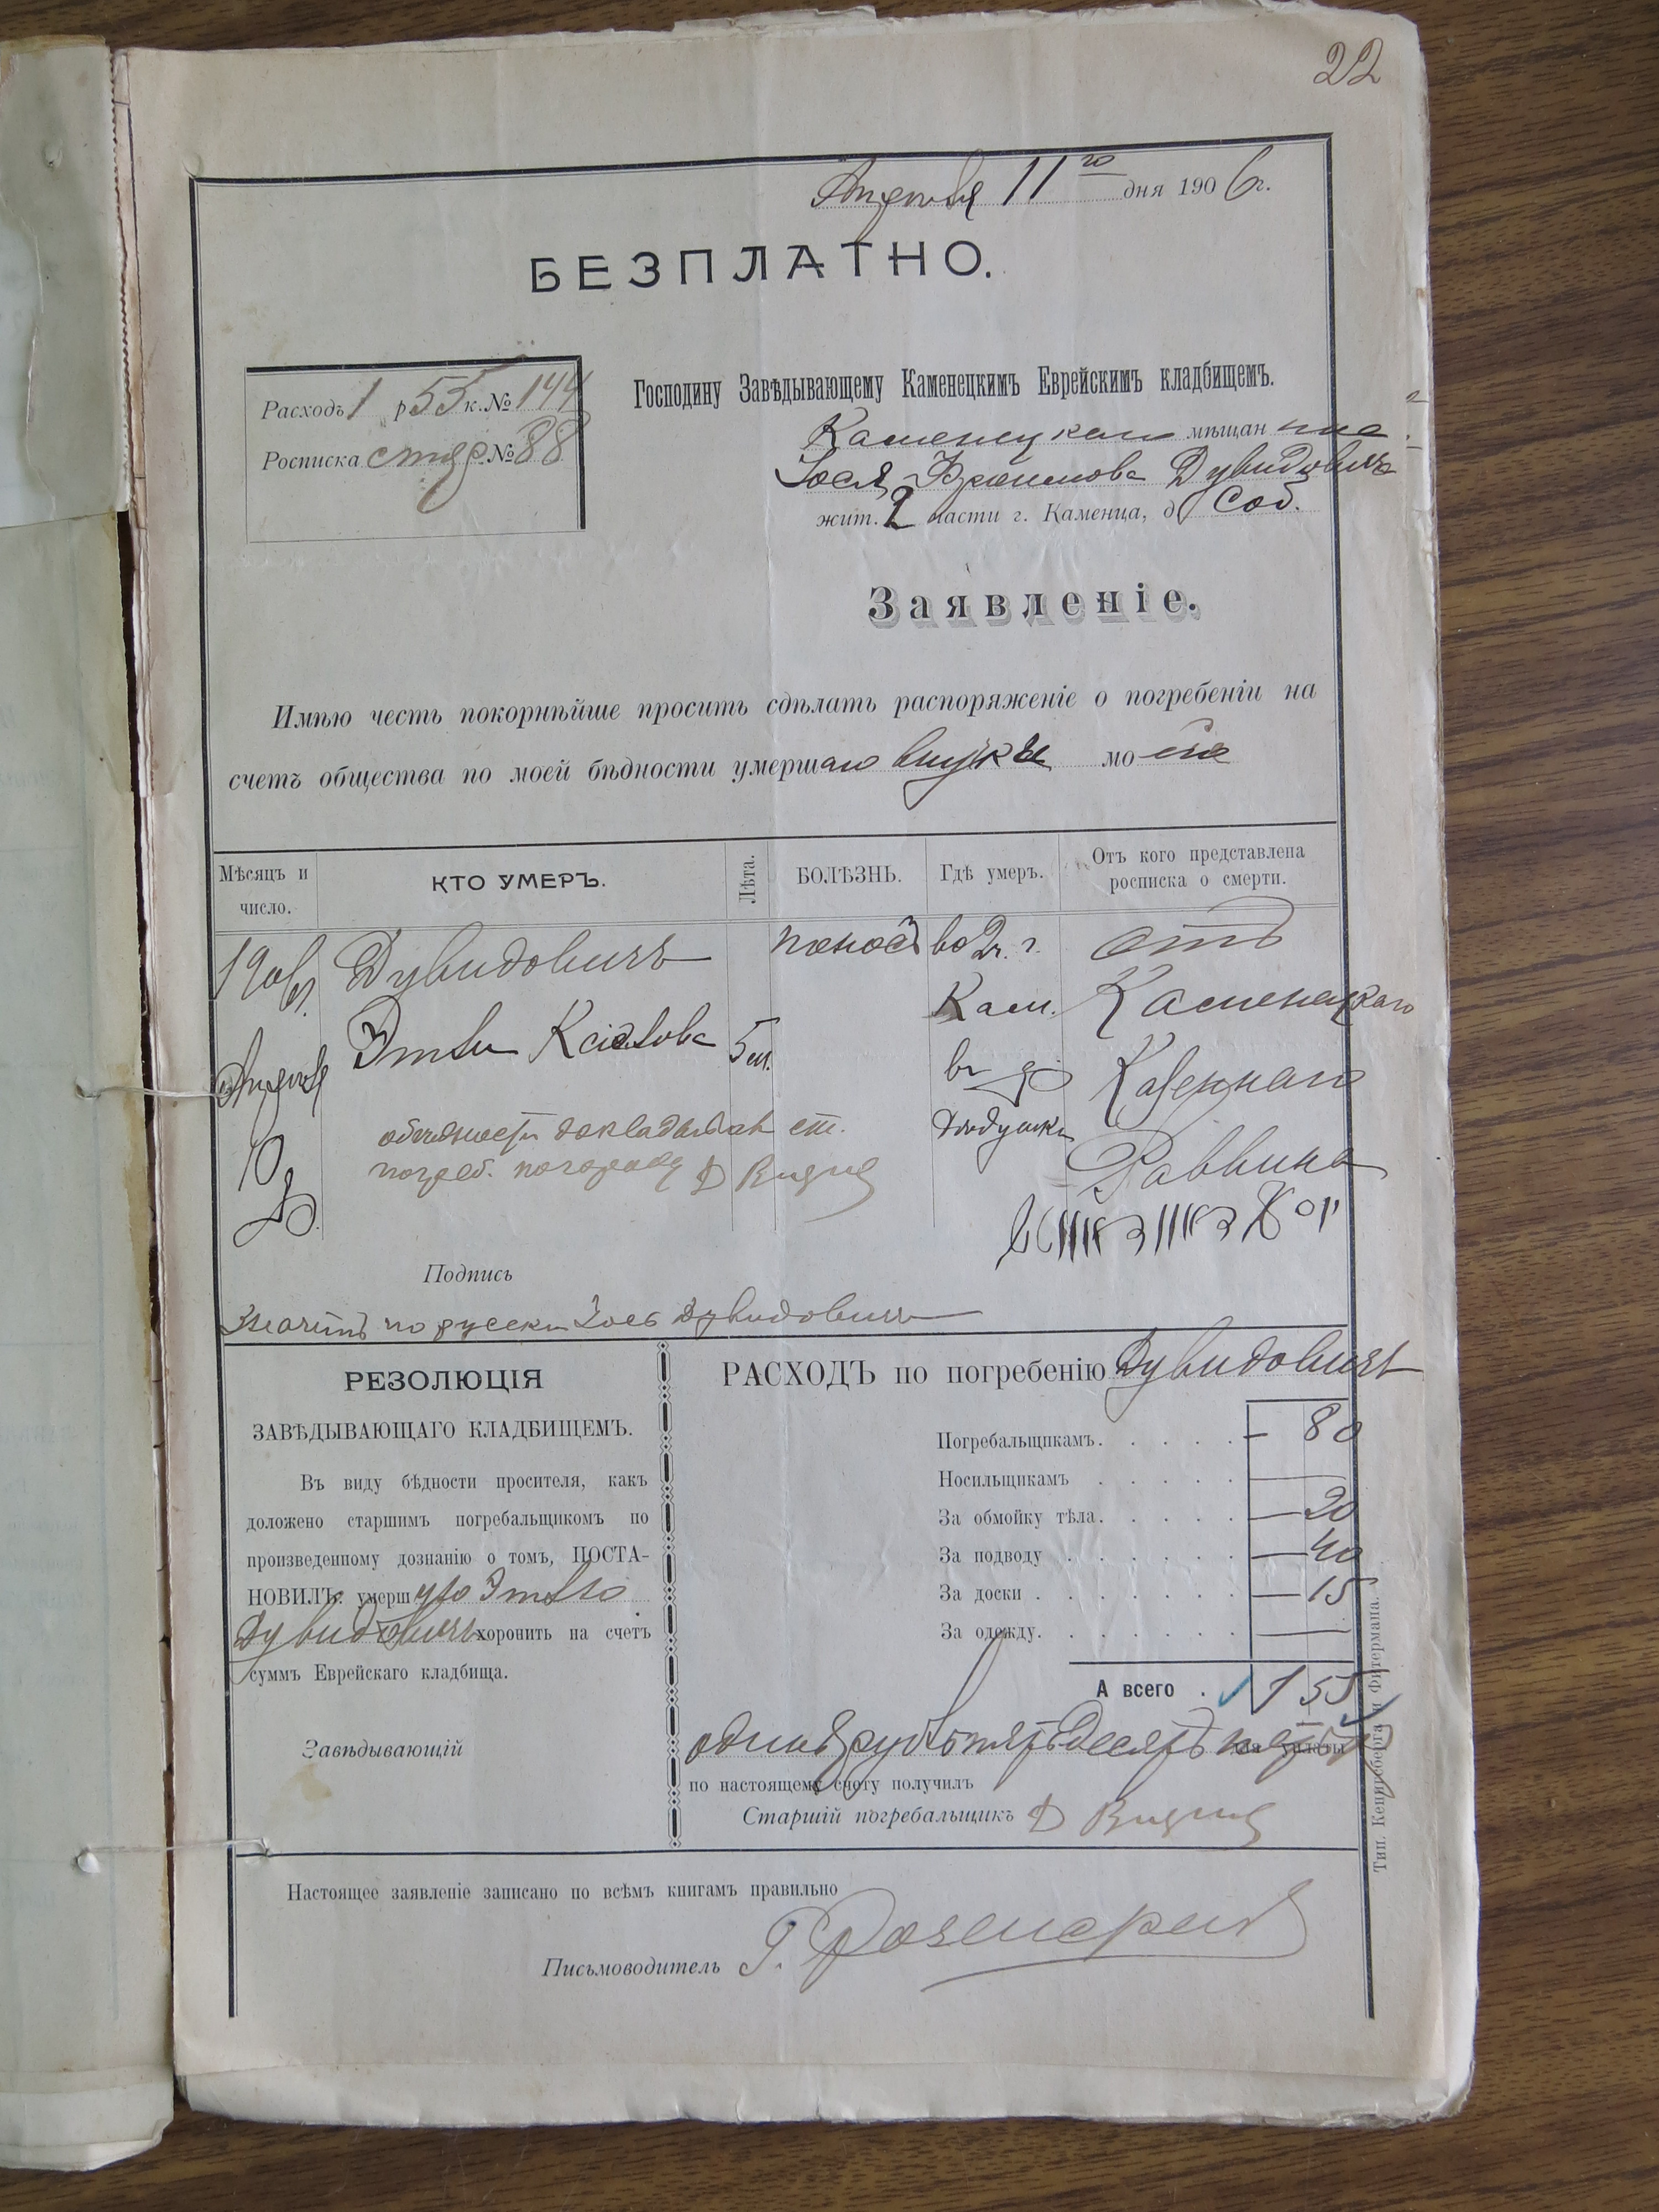 22
Апреля 11го дня 1906 г.
БЕЗПЛАТНО.
Расходъ 1 р 55 к. № 144
Росписка № 88
Господину Завѣдывающему Каменецкимъ Еврейскимъ кладбищемъ.
мѣщан
Дувидовичъ
жит. 2 части г. Каменца, д. Соб.
Заявленіе.
Имѣю честь покорнѣйше просить сдѣлать распоряженіе о погребеніи на
счетъ общества по моей бѣдности умершаго внучкѣ мо
Мѣсяцъ и число.
КТО УМЕРЪ.
Лѣта.
БОЛѢЗНЬ.
Гдѣ умеръ.
Отъ кого представлена росписка о смерти.
1906 г. Дувидовичъ поносъ во 2 ч. г. отъ
Этля 5 м. Кам. Каменецкаго
Апреля въ д. Казеннаго
10 Раввина
о бѣдности
Д
Подпись
по русски Іось Дувидовичъ
РЕЗОЛЮЦІЯ
ЗАВѢДЫВАЮЩАГО КЛАДБИЩЕМЪ.
Въ виду бѣдности просителя, какъ
доложено старшимъ погребальщикомъ по
произведенному дознанію о томъ, ПОСТА-
НОВИЛЪ: умершую Этлю
Дувидовичъ хоронить на счетъ
суммъ Еврейскаго кладбища.
Завѣдывающій
РАСХОДЪ по погребенію Дувидовичъ
Погребальщикамъ. — 80
Носильщикамъ —
За обмойку тѣла. — 20
За подводу — 40
За доски — 15
За одежду. —
А всего 1 55
одинъ руб. пятьдесятъ пять
по настоящему счету получилъ
Старшій погребальщикъ Д
Настоящее заявленіе записано по всѣмъ книгамъ правильно
Письмоводитель Г.
Тип. Кенигсберга и Фитермана.